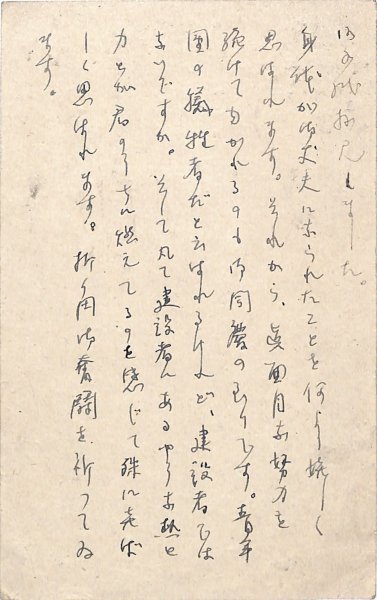 御手紙拝見しました。
身體が御丈夫になられたことを何より嬉しく
思はれます。それから、眞面目な努力を
続けてゐられるのも御同慶の至りです。青年
團の犠牲者だと云はれるけれど、建設者では
ないですか。そして凡て建設者にあるやうな熱と
力とが君のうちに燃えてるのを感じて殊に喜ば
しく思はれます。折角御奮闘を祈つてゐ
ます。